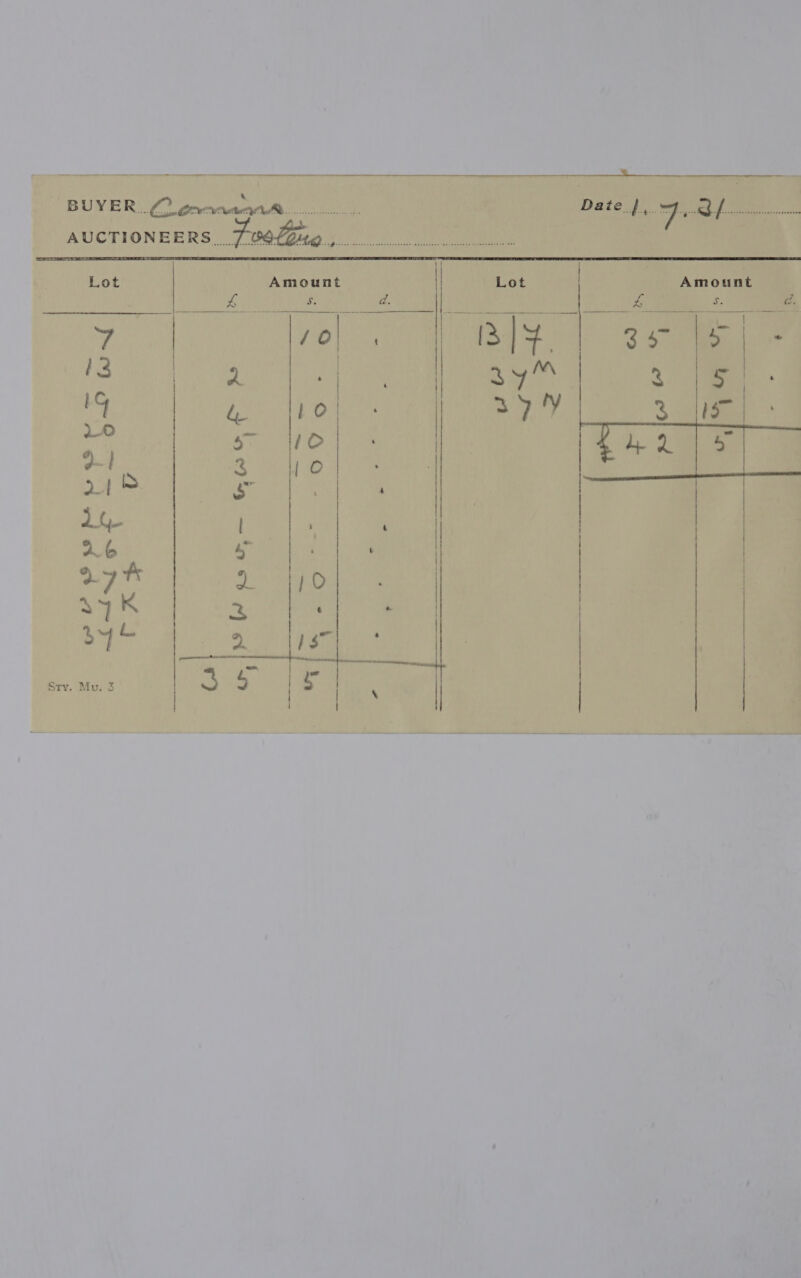 BUYER
Date 1.7.31
AUCTIONEERS
Lot Amount Lot Amount
£ s. d. £ s. d.
7 10 . B/F. 35 5 .
13 2 . . 27M 3 5 .
19 4 10 . 27N 3 15 .
20 5 10 . £42 5
21 3 10 .
21D 5 . .
24 1 . .
26 5 . .
27A 2 10 .
27K 3 . .
27L 2 15 .
Stv. Mu. 3 35 5 .